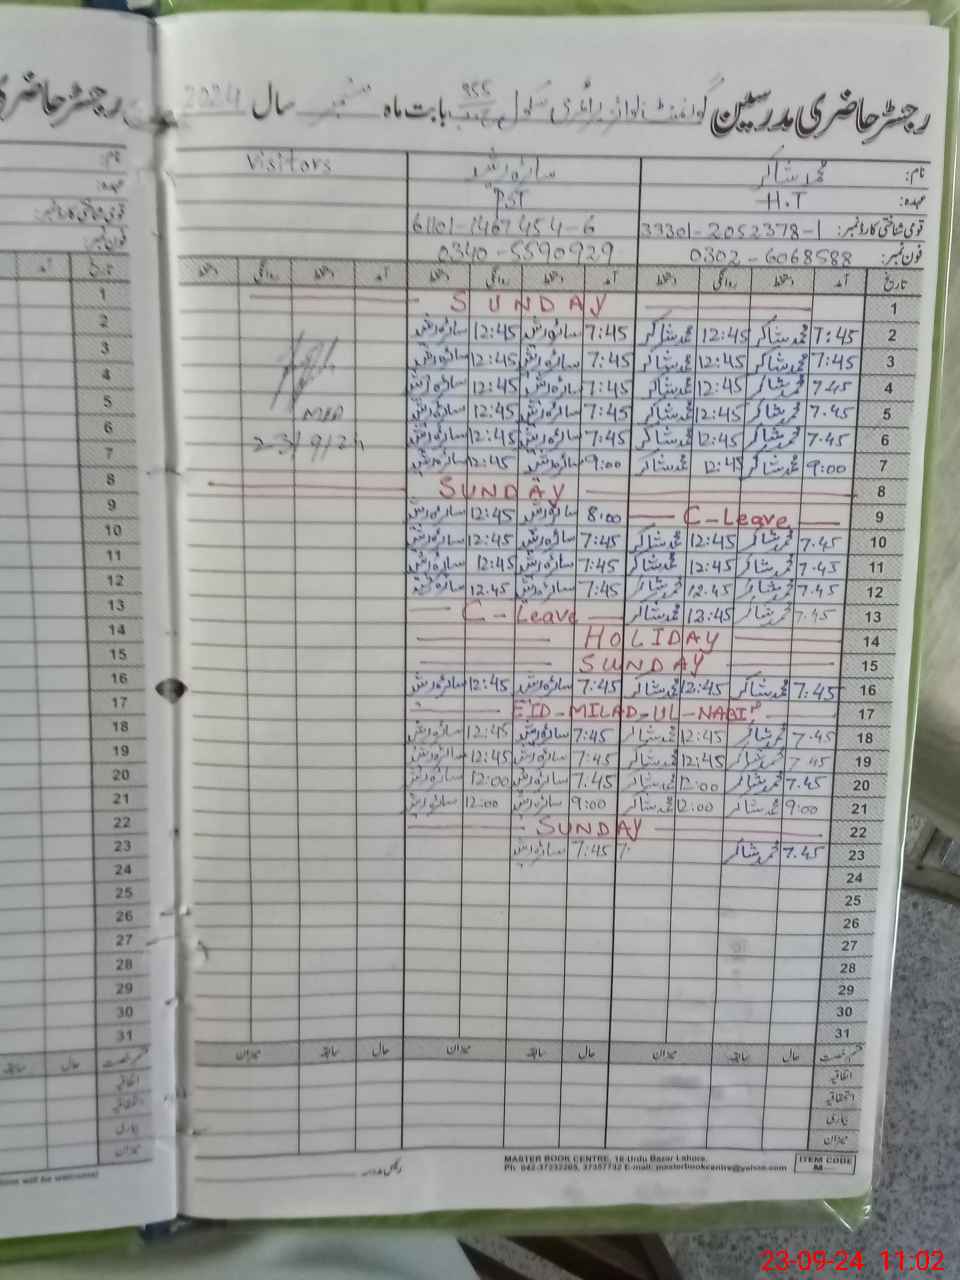 رجسٹر حاضری مدرسین گورنمنٹ نواز پرائمری سکول 955 بابت ماہ ستمبر سال 2024
نام: محمد شاکر سائرہ رشید Visitors
عہدہ: H.T PST
قومی شناختی کارڈ نمبر: 33301-2052378-1 61101-1467454-6
فون نمبر: 0302-6068588 0340-5590929
تاریخ آمد دستخط روانگی دستخط آمد دستخط روانگی دستخط آمد دستخط روانگی دستخط
1 SUNDAY
2 7:45 محمد شاکر 12:45 محمد شاکر 7:45 سائرہ رشید 12:45 سائرہ رشید
3 7:45 محمد شاکر 12:45 محمد شاکر 7:45 سائرہ رشید 12:45 سائرہ رشید
4 7.45 محمد شاکر 12:45 محمد شاکر 7:45 سائرہ رشید 12:45 سائرہ رشید
5 7.45 محمد شاکر 12:45 محمد شاکر 7:45 سائرہ رشید 12:45 سائرہ رشید
6 7.45 محمد شاکر 12:45 محمد شاکر 7:45 سائرہ رشید 12:45 سائرہ رشید
7 9:00 محمد شاکر 12:45 محمد شاکر 9:00 سائرہ رشید 12:45 سائرہ رشید
23/9/24
8 SUNDAY
9 C-Leave 8:00 سائرہ رشید 12:45 سائرہ رشید
10 7.45 محمد شاکر 12:45 محمد شاکر 7:45 سائرہ رشید 12:45 سائرہ رشید
11 7.45 محمد شاکر 12:45 محمد شاکر 7:45 سائرہ رشید 12:45 سائرہ رشید
12 7.45 محمد شاکر 12.45 محمد شاکر 7:45 سائرہ رشید 12.45 سائرہ رشید
13 7.45 محمد شاکر 12:45 محمد شاکر C-Leave
14 HOLIDAY
15 SUNDAY
16 7.45 محمد شاکر 12:45 محمد شاکر 7:45 سائرہ رشید 12:45 سائرہ رشید
17 EID-MILAD-UL-NABI
18 7.45 محمد شاکر 12:45 محمد شاکر 7:45 سائرہ رشید 12:45 سائرہ رشید
19 7.45 محمد شاکر 12:45 محمد شاکر 7:45 سائرہ رشید 12:45 سائرہ رشید
20 7.45 محمد شاکر 12:00 محمد شاکر 7.45 سائرہ رشید 12:00 سائرہ رشید
21 9:00 محمد شاکر 12:00 محمد شاکر 9:00 سائرہ رشید 12:00 سائرہ رشید
22 SUNDAY
23 7.45 محمد شاکر 7:45 سائرہ رشید
24
25
26
27
28
29
30
31
قسم رخصت حال سابقہ میزان حال سابقہ میزان حال سابقہ میزان
اتفاقیہ
استحقاقیہ
بیماری
میزان
MASTER BOOK CENTRE, 16-Urdu Bazar Lahore.
Ph: 042-37232205, 37357732 E-mail: masterbookcentre@yahoo.com
ITEM CODE
M
23-09-24 11:02